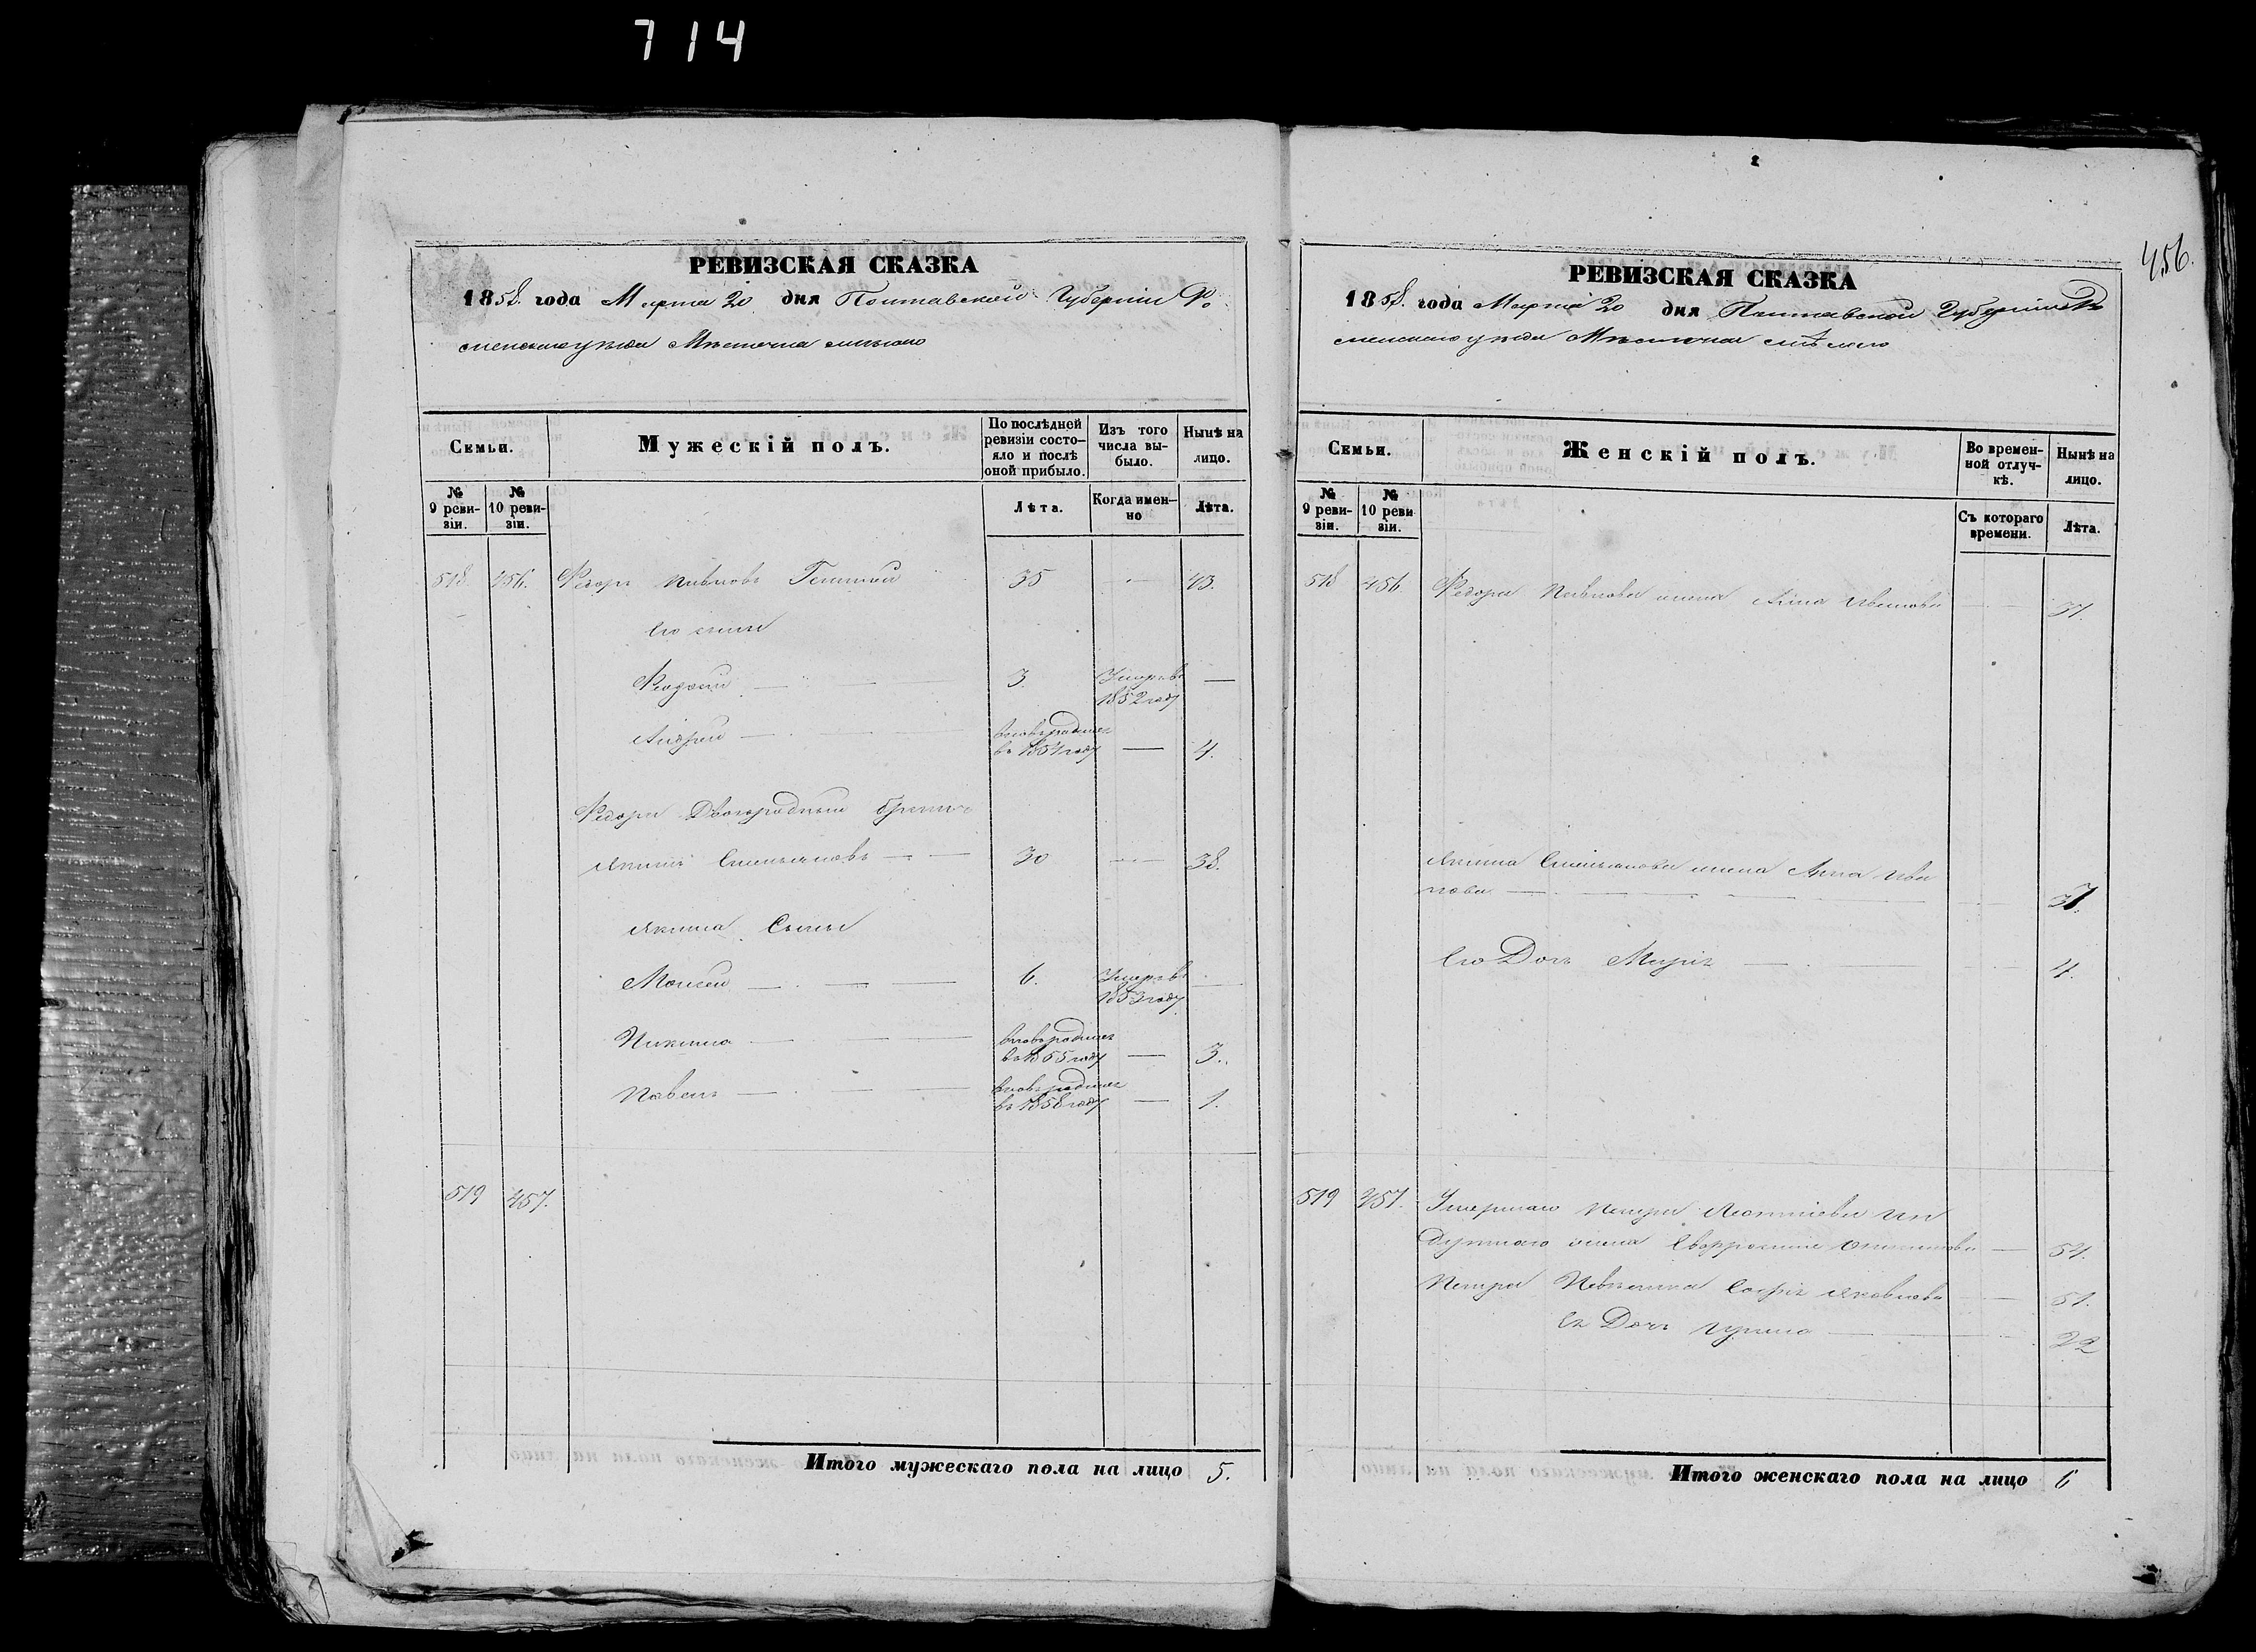 714
456.
РЕВИЗСКАЯ СКАЗКА
1858. года Марта 20 дня Полтавской Губерніи Ро
менского уѣзда Мѣстечка Смѣлого
Семьи.
Мужескій полъ.
По послѣдней ревизіи состояло и послѣ оной прибыло.
Изъ того числа выбыло.
Нынѣ на лицо.
№ 9 ревизіи.
№ 10 ревизіи.
Лѣта.
Когда именно
Лѣта.
518 456. Федоръ Павловъ 35 — 43.
Его сыны
Феодосій — 3. Умеръ въ 1852 году —
Андрей — вновь родился въ 1854 году — 4.
Федора Двоюродный братъ
Якимъ Емельяновъ — 30 — 38.
Якима Сыны
Моисей — 6. Умеръ въ 1853 году —
Никита — вновь родился въ 1855 году — 3.
Павелъ — вновь родился въ 1858 году — 1.
519 457.
Итого мужескаго пола на лицо 5.
РЕВИЗСКАЯ СКАЗКА
1858. года Марта 20 дня Полтавской Губерніи Ро
менского уѣзда Мѣстечка Смѣлого
Семьи.
Женскій полъ.
Во временной отлучкѣ.
Нынѣ на лицо.
№ 9 ревизіи.
№ 10 ревизіи.
Съ котораго времени.
Лѣта.
518 456. Федора Павлова жена Анна Иванова — 37.
Якима Емельянова жена Анна Ива
нова — 37.
Его Дочь Марія — 4.
519 457. Умершаго Петра Леонтіева
жена Евфросинія — 54.
Петра Невѣстка Софія Яковлева — 51.
Ея Дочь Ирина — 22
Итого женскаго пола на лицо 6